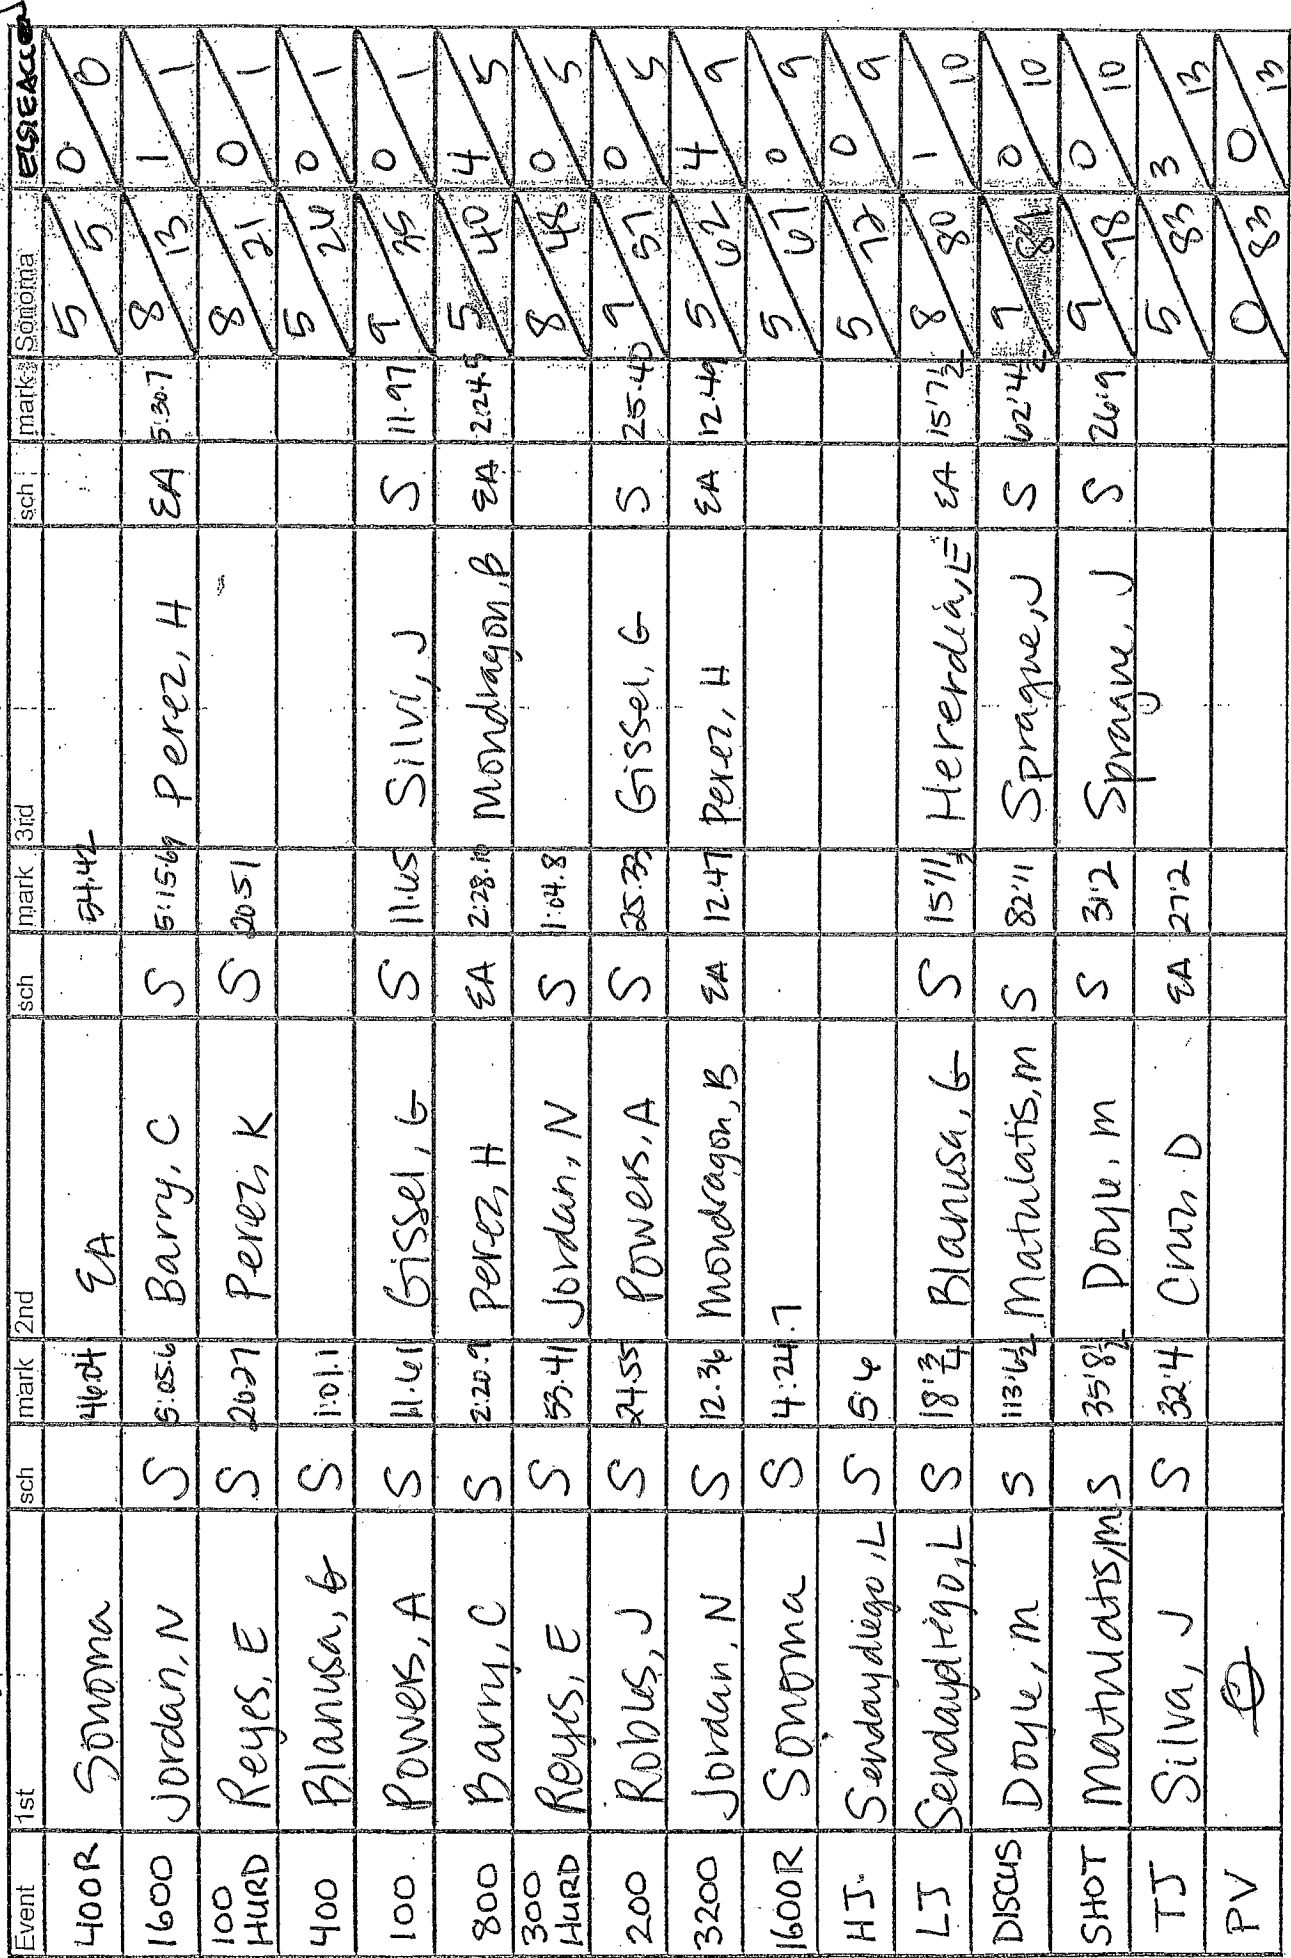 Event 1st sch mark 2nd sch mark 3rd sch mark Sonoma ELSIE ALLEN
400R Sonoma 46.04 EA 54.42 5/5 0/0
1600 Jordan, N S 5:05.6 Barry, C S 5:15.69 Perez, H EA 5:30.7 8/13 1/1
100 HURD Reyes, E S Perez, K S 20.51 8/21 0/1
400 Blanusa, G S 1:01.1 5/26 0/1
100 Powers, A S 11.61 Gissel, G S 11.65 Silvi, J S 11.97 9/35 0/1
800 Barry, C S 2:20.9 Perez, H EA 2:28.10 Mondragon, B EA 2:24.9 5/40 4/5
300 HURD Reyes, E S 53.41 Jordan, N S 1:04.8 8/48 0/5
200 Robles, J S 24.55 Powers, A S 25.33 Gissel, G S 25.40 9/57 0/5
3200 Jordan, N S 12.36 Mondragon, B EA 12.47 Perez, H EA 12.49 5/62 4/9
1600R Sonoma S 4:24.7 5/67 0/9
HJ. Sendaydiego, L S 5'6 5/72 0/9
LJ Sendaydiego, L S 18'3/4 Blanusa, G S 15'11 Hererdia, E EA 15'7 1/2 8/80 1/10
DISCUS Doyle, M S 113'6 1/2 Matulatis, M S 82'11 Sprague, J S 62'4 1/2 9/89 0/10
SHOT Matulatis, M S 35'8 1/2 Doyle, M S 31'2 Sprague, J S 26'9 9/78 0/10
TJ Silva, J S 32'4 Cruz, D EA 27'2 5/83 3/13
PV 0/83 0/13